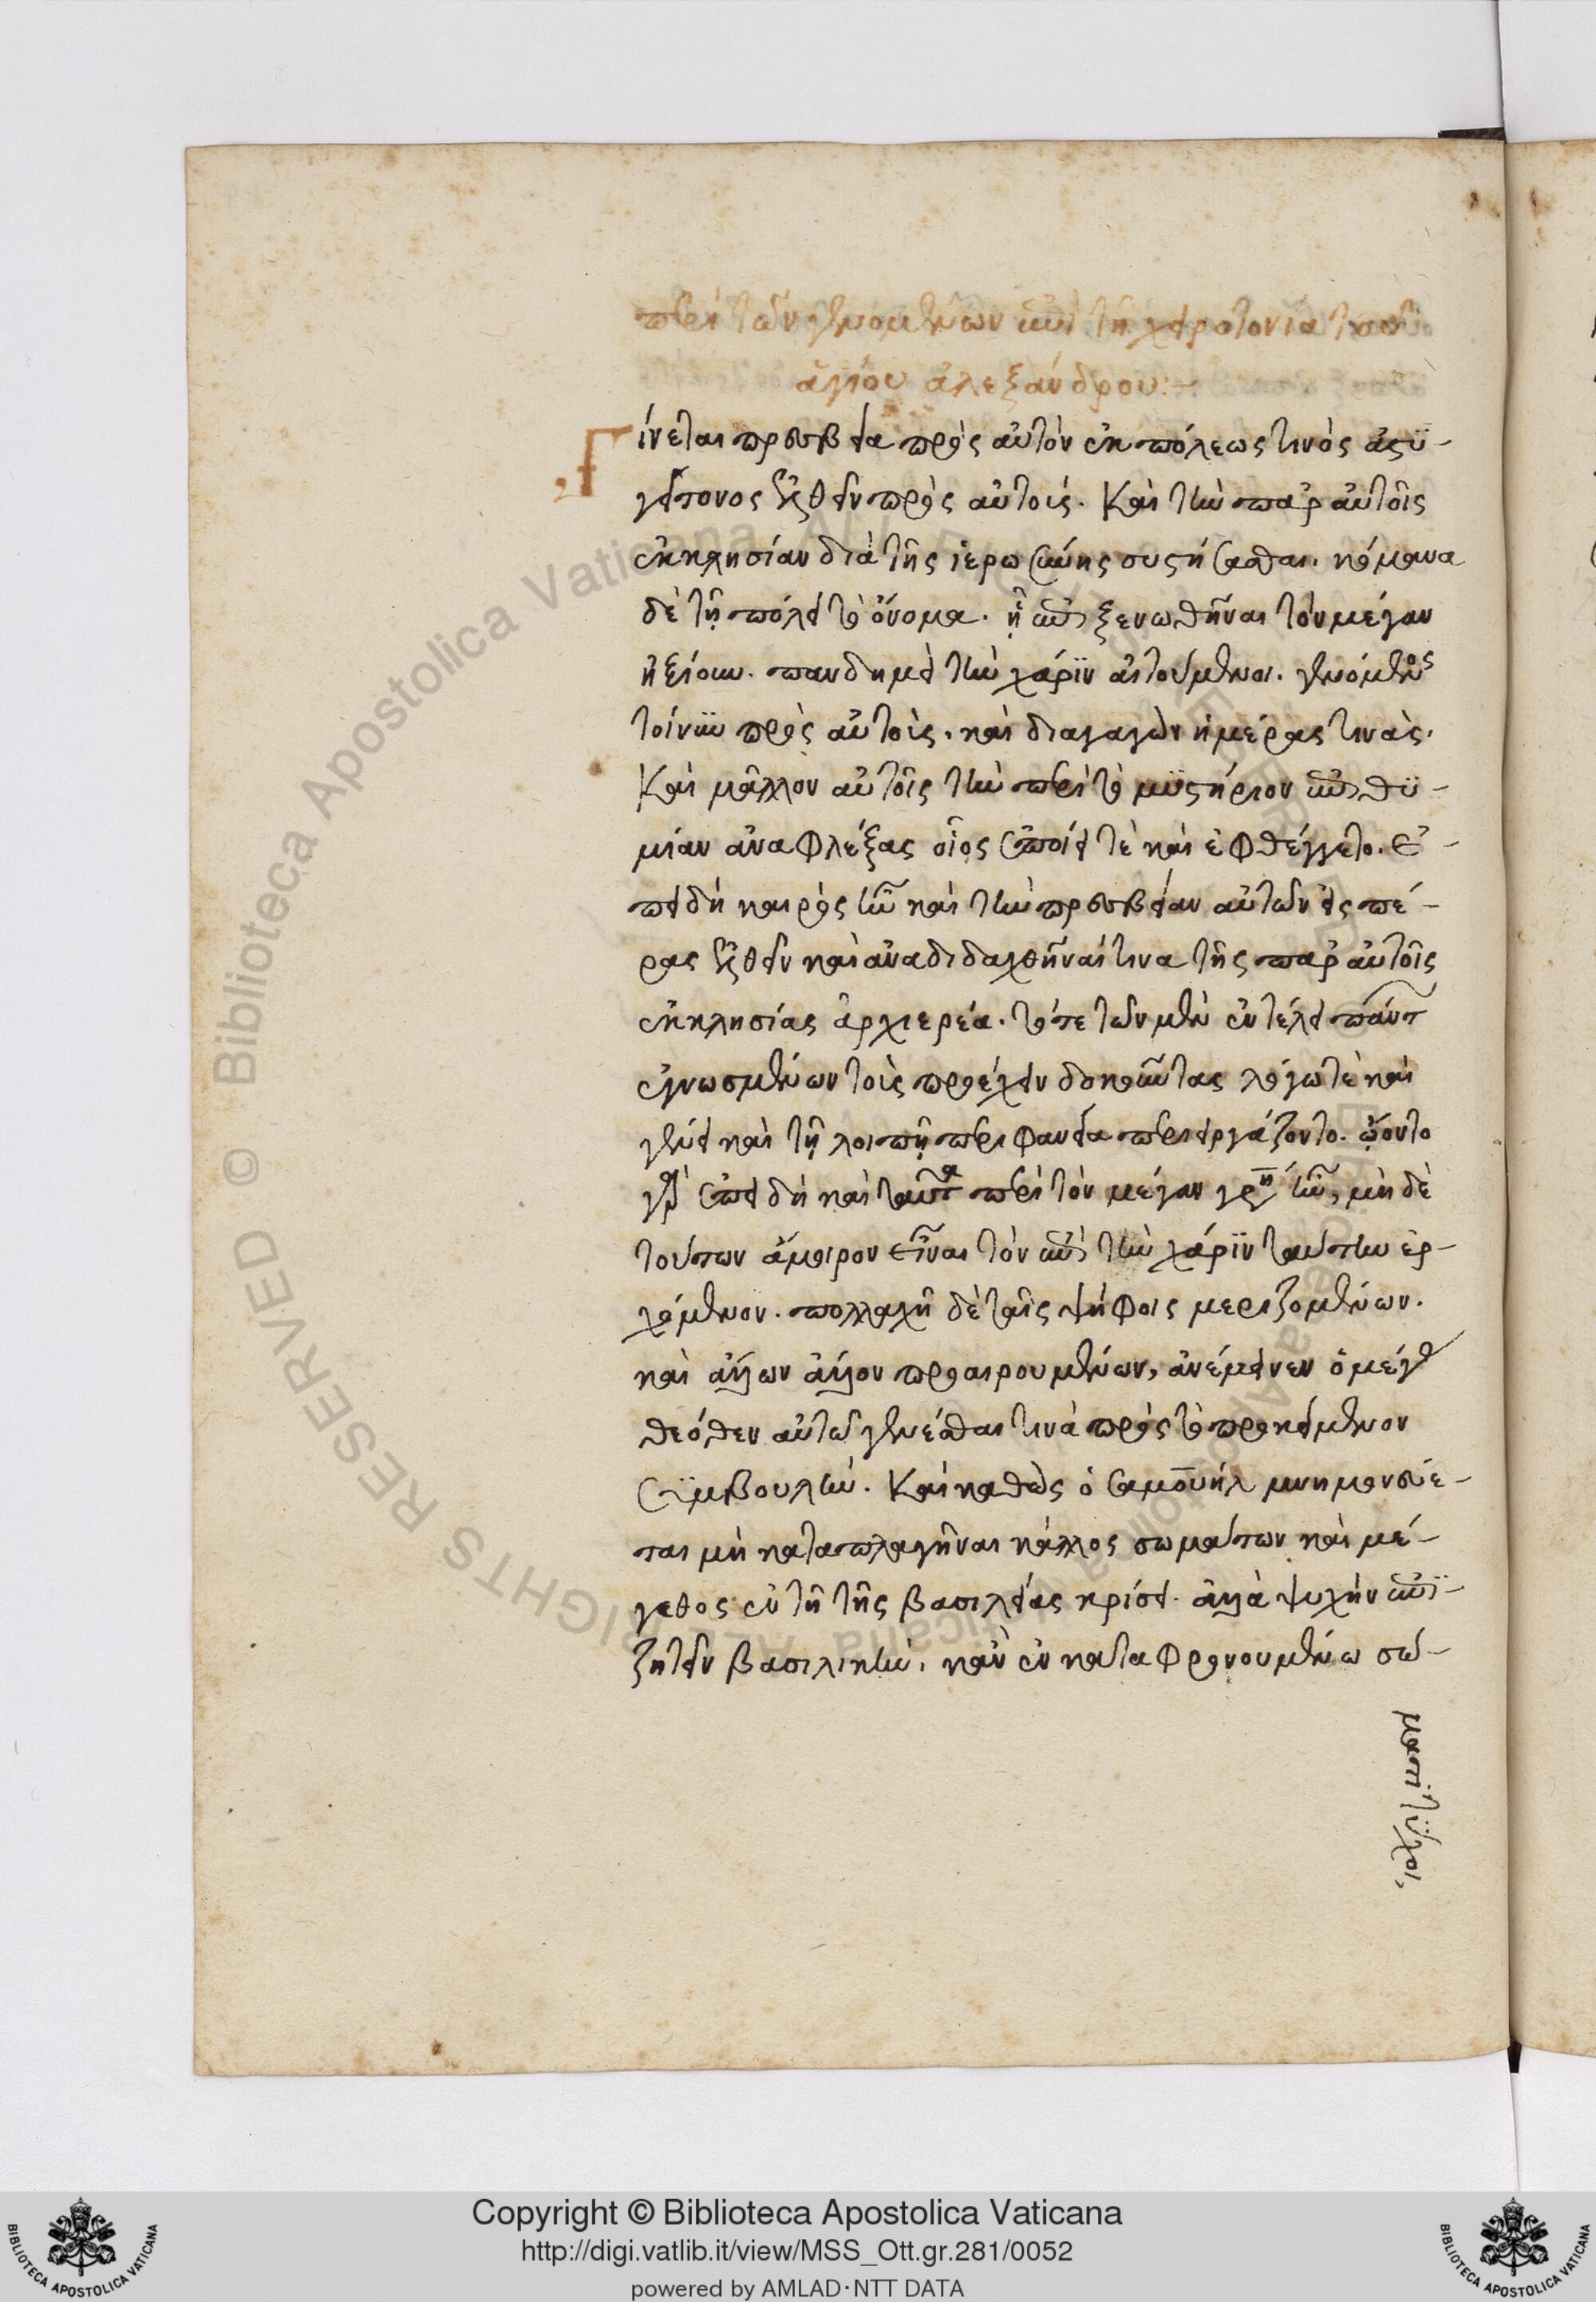 περὶ τῶν γενομένων ἐπὶ τῇ χειροτονία τοῦ
ἁγίου ἀλεξάνδρου:~
Γίνεται πρεσβεία πρὸς αὐτὸν ἐκ πόλεως τινὸς ἀστϋ-
γείτονος ἐλθεῖν πρὸς αὐτοὺς. Καὶ τὴν παρ αὐτοῖς
ἐκκλησίαν διὰ τῆς ἱερωσύνης συστήσασθαι. κόμανα
δὲ τῇ πόλει τὸ ὄνομα. ᾗ ἐπιξενωθῆναι τὸν μέγαν
ἠξίουν. πανδημεὶ τὴν χάρϊν αἰτούμενοι. γενόμενος
τοίνϋν πρὸς αὐτοὺς. καὶ διαγαγὼν ἡμέρας τινὰς.
Καὶ μᾶλλον αὐτοῖς τὴν περὶ τὸ μϋστήριον ἐπιθϋ-
μίαν ἀναφλέξας οἷος ἐποίει τὲ καὶ ἐφθέγγετο. Ἐ-
πειδὴ καιρὸς ἦν καὶ τὴν πρεσβείαν αὐτῶν εἰς πέ-
ρας ἐλθεῖν καὶ ἀναδιδαχθῆναί τινα τῆς παρ αὐτοῖς
ἐκκλησίας ἀρχιερέα. τότε τῶν μὲν ἐν τέλει πάντ
ἐγνωσμένων τοὺς προέχειν δοκοῦντας λόγω τὲ καὶ
γένει καὶ τῇ λοιπῇ περιφανεία περιειργάζοντο. ᾤοντο
γὰρ ἐπειδὴ καὶ ταῦτα περὶ τὸν μέγαν γρη ἦν, μὴ δὲ
τούτων ἄμοιρον εἶναι τὸν ἐπὶ τὴν χάρϊν ταύτην ἐρ-
χόμενον. πολλαχῆ δὲ ταῖς ψήφοις μεριζομένων.
καὶ ἄλλων ἄλλον προαιρουμένων, ἀνέμεινεν ὁ μέγ
θεόθεν αὐτῶ γενέσθαι τινὰ πρὸς τὸ προκείμενον
Σϋμβουλήν. Καὶ καθὼς ὁ σαμουὴλ μνημονεύε-
ται μὴ καταπλαγῆναι κάλλος σωμάτων καὶ μέ-
γεθος ἐν τῇ τῆς βασιλείας κρίσει. ἀλλὰ ψυχὴν ἐπϊ-
ζητεῖν βασιλικὴν. κἂν ἐν καταφρονουμένω σώ-
ματι τϋχοι,
Copyright © Biblioteca Apostolica Vaticana
http://digi.vatlib.it/view/MSS_Ott.gr.281/0052
powered by AMLAD·NTT DATA